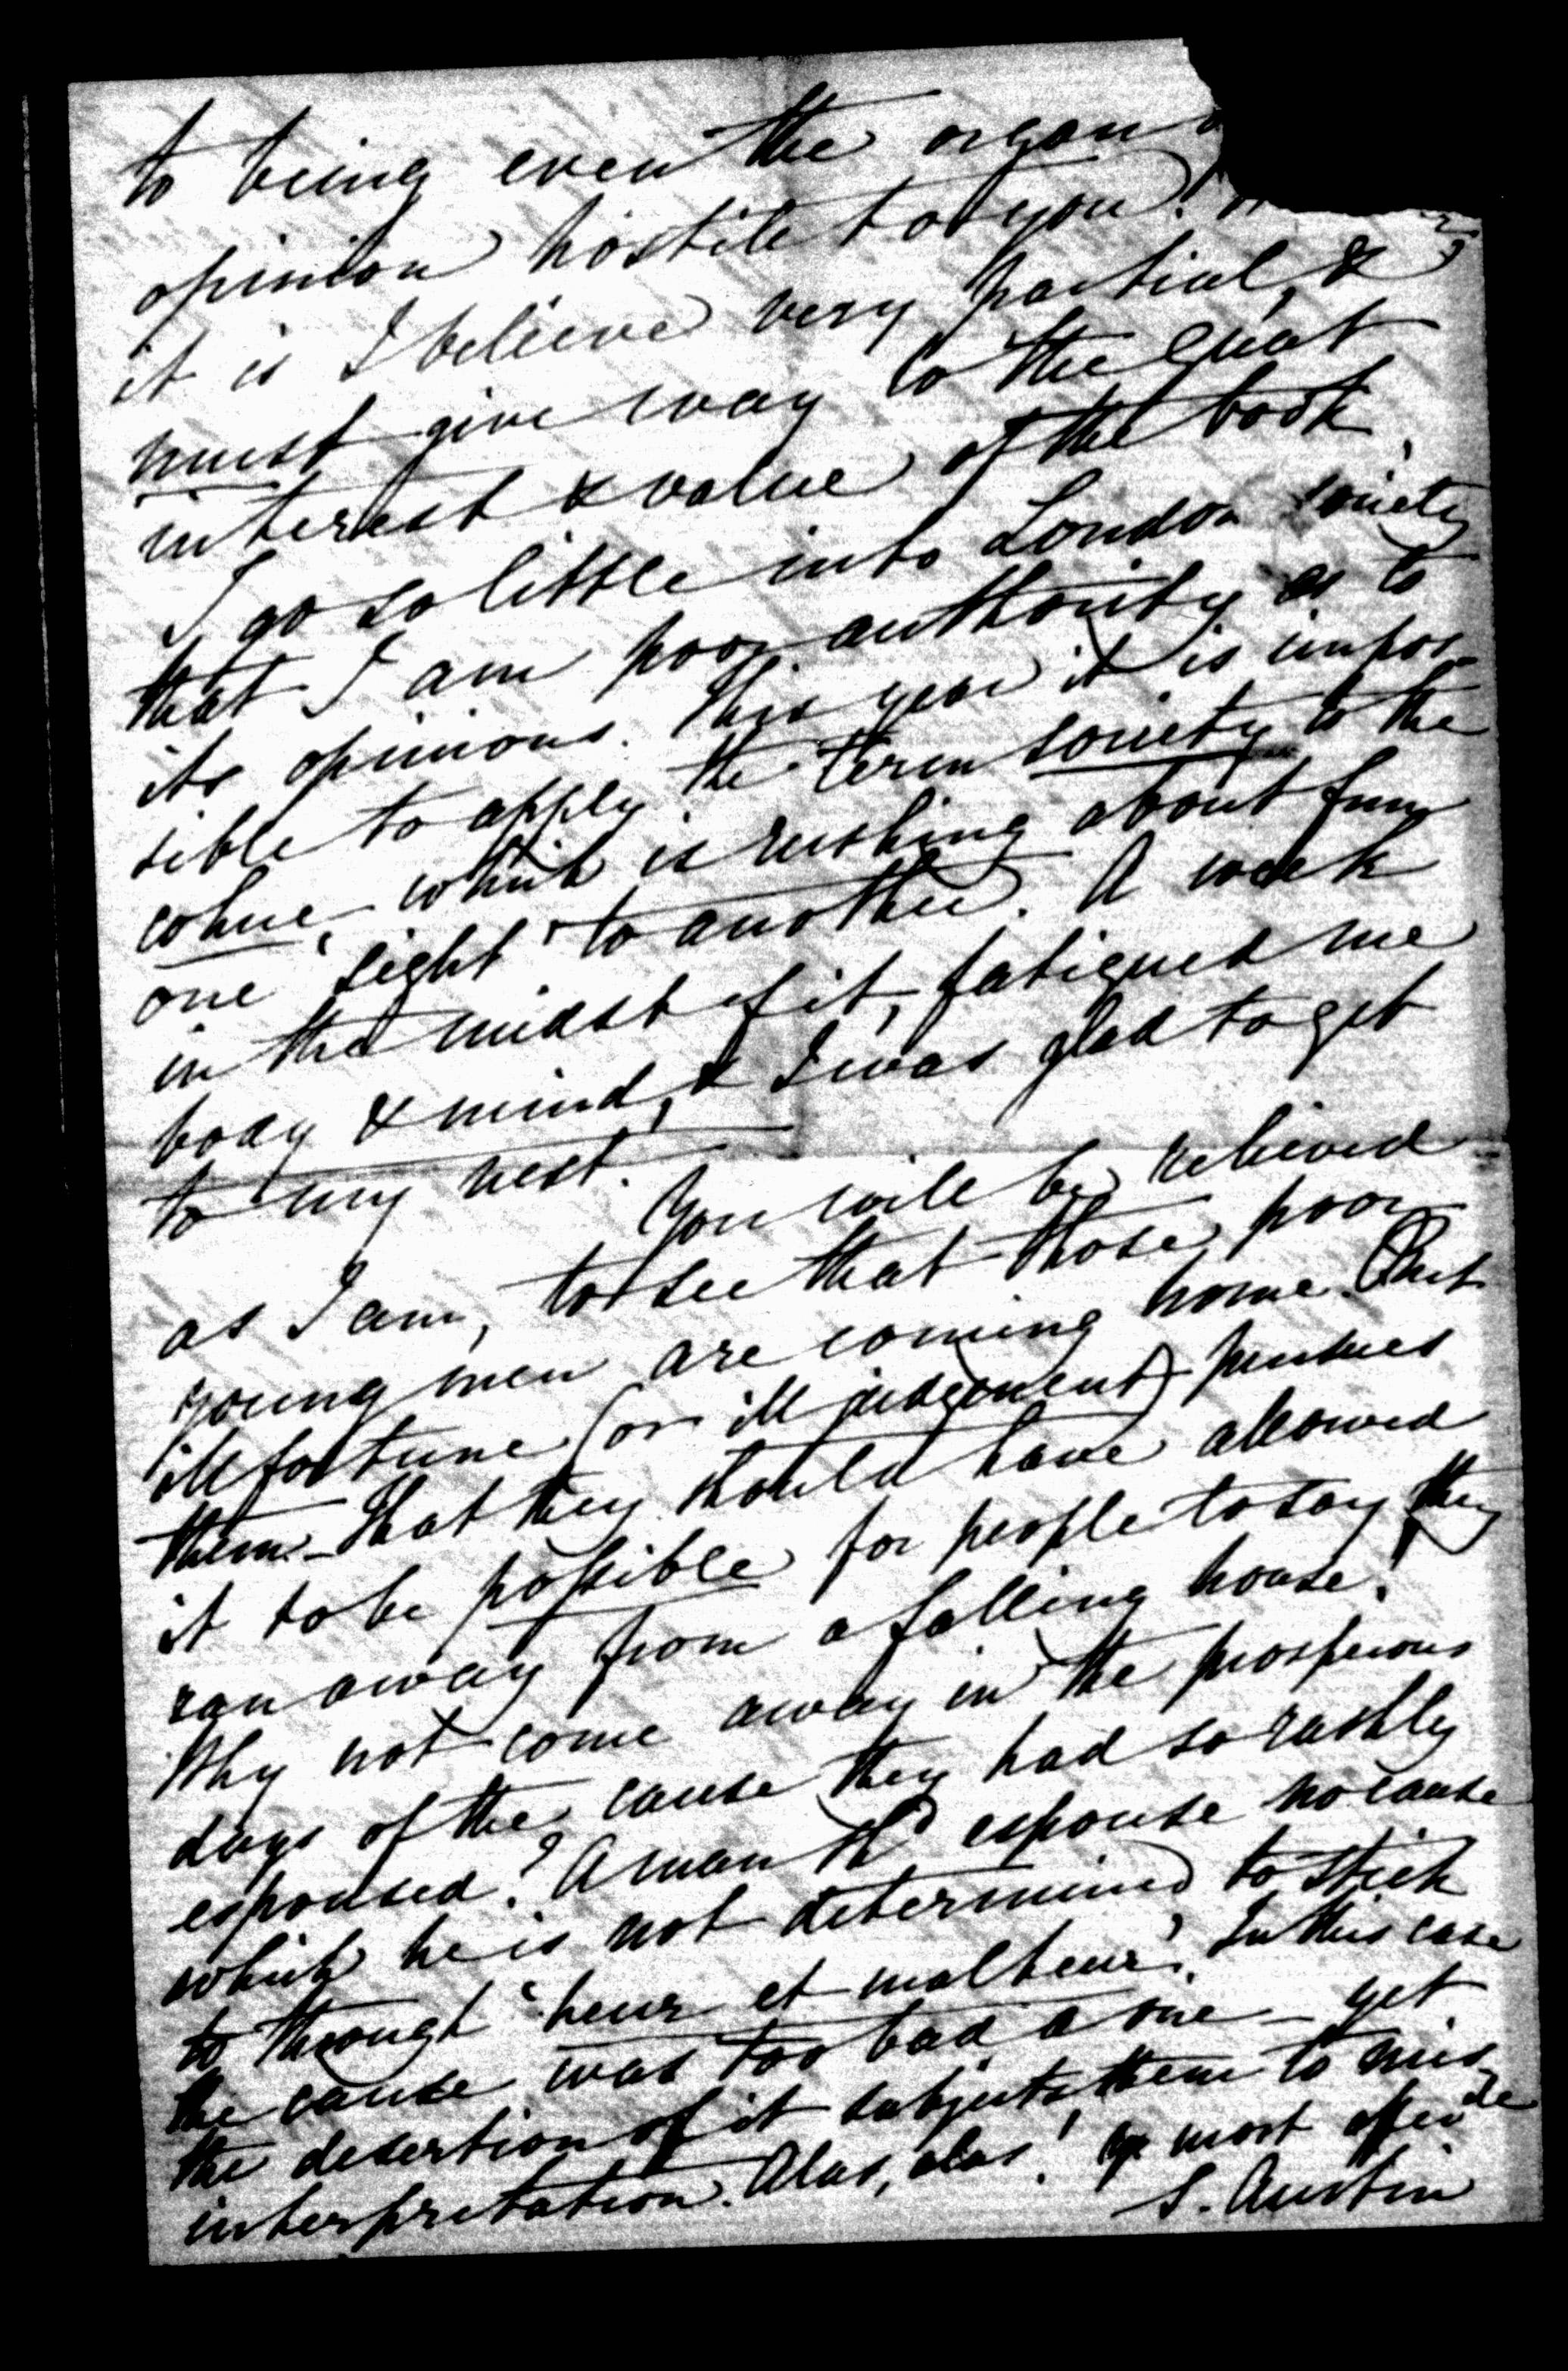 to being even the organ
opinion hostile to you!
it is I believe very partial, &
must give way to the great
interest & value of the book.
I go so little into London society
that I am poor authority as to
its opinions. This year it is impos-
sible to apply the term society to the
cohue, which is rushing about from
one 'sight' to another. A week
in the midst of it, fatigued me
body & mind, & I was glad to get
to my nest.
You will be relieved
as I am, to see that those poor
young men are coming home. But
ill fortune (or ill judgement) pursues
them - that they should have allowed
it to be possible for people to say they
ran away from a falling house!
Why not come away in the prosperous
days of the cause they had so rashly
espoused? A man shd espouse no cause
which he is not determined to stick
to through 'heur et malheur'. In this case
the cause was too bad a one - yet
the desertion of it subjects them to mis-
interpretation. Alas, alas! yr most affec
S. Austin